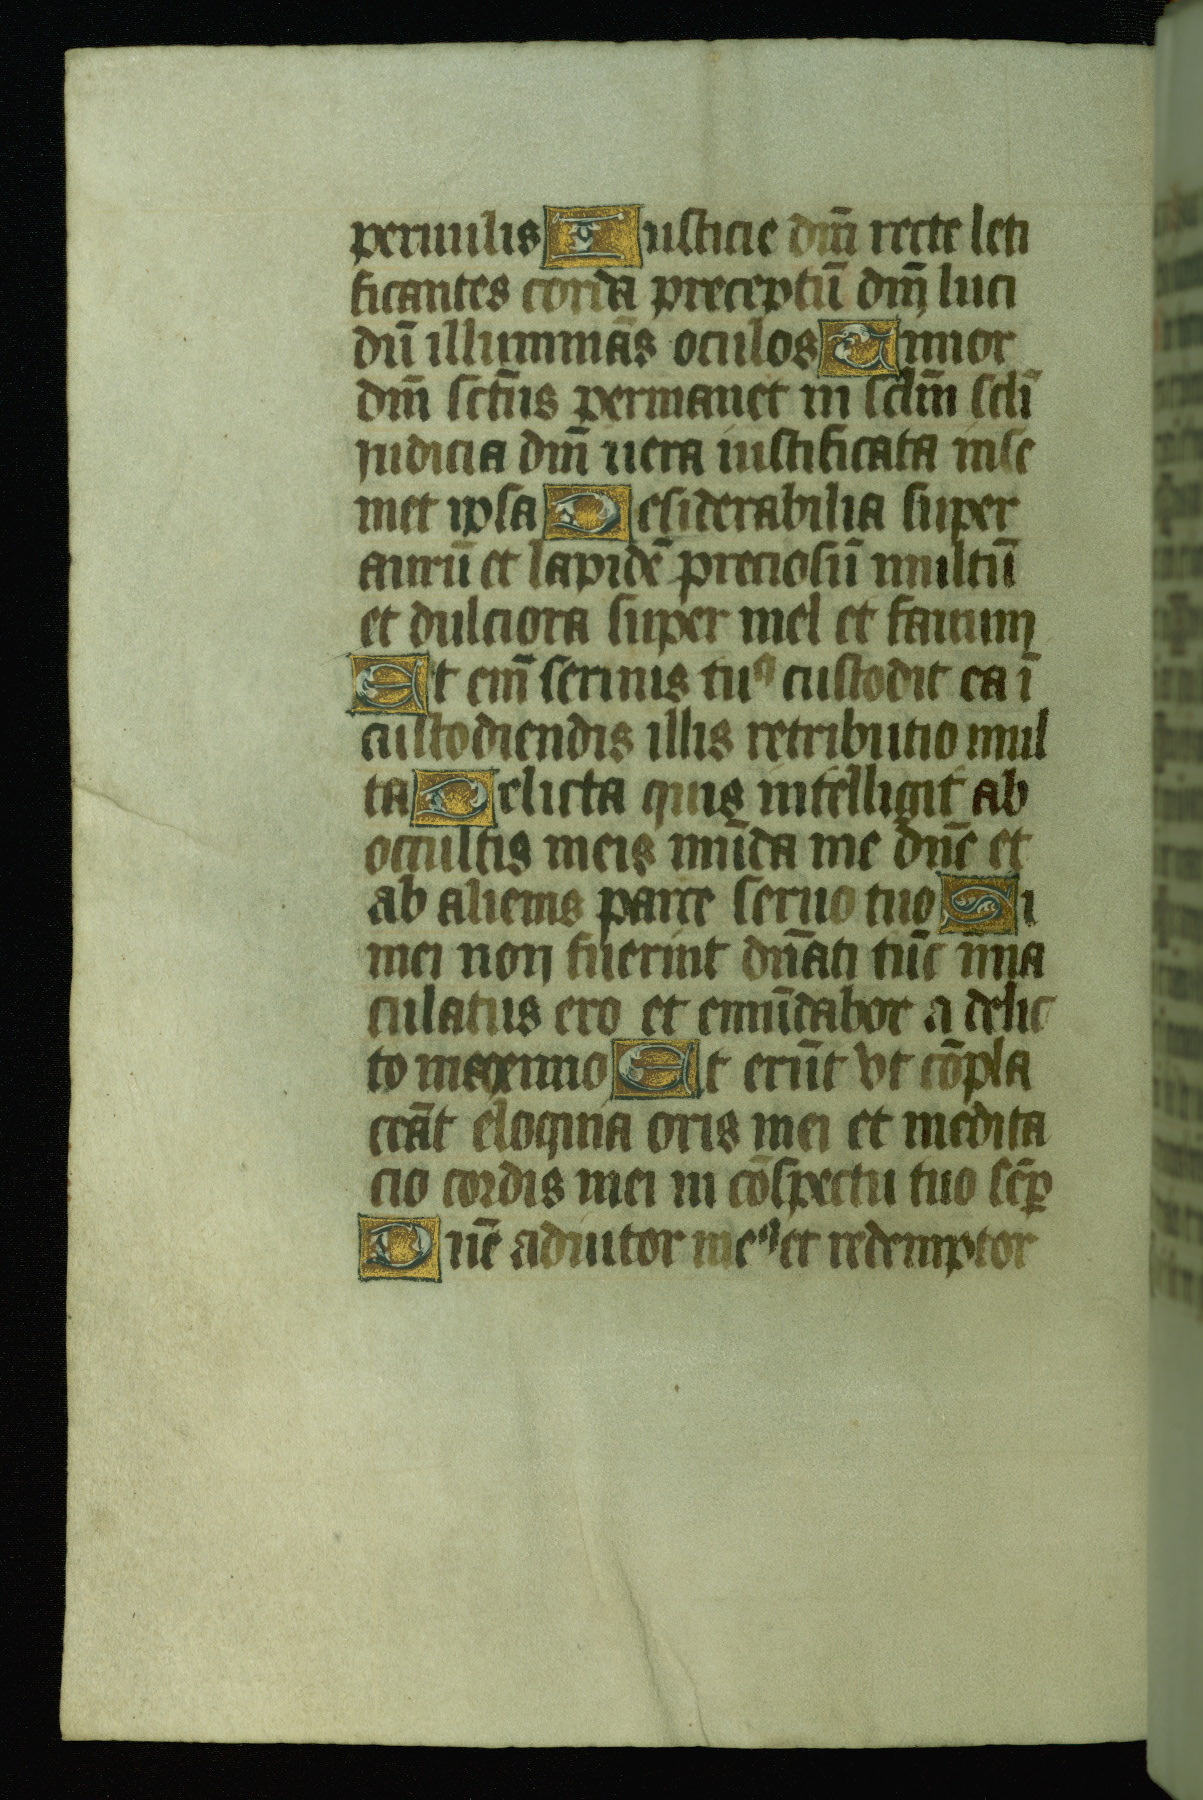 peruulis Iusticie dm̄ recte leti
ficantes corda preceptū dm̄ luci
dū illuminās oculos Timor
dm̄ sctūs permanet in sclm̄ scli̅
iudicia dm̄ uera iustificata inse
met ipsa Desiderabilia super
aurū et lapidē preciosū multū
et dulciora super mel et fauum
Et em̄ seruus tuꝰ custodit ea ī
custodiendis illis retributio mul
ta Delicta quis intelligit ab
occultis meis mūda me dn̄e et
ab alienis parce seruo tuo Si
mei non fuerint dn̄ati tūc īma
culatus ero et emūdabor a delic
to maximo Et erūt vt cōpla
ceāt eloquia oris mei et medita
cio cordis mei in cōspectu tuo sēꝑ
Dn̄e adiutor meꝰ et redemptor